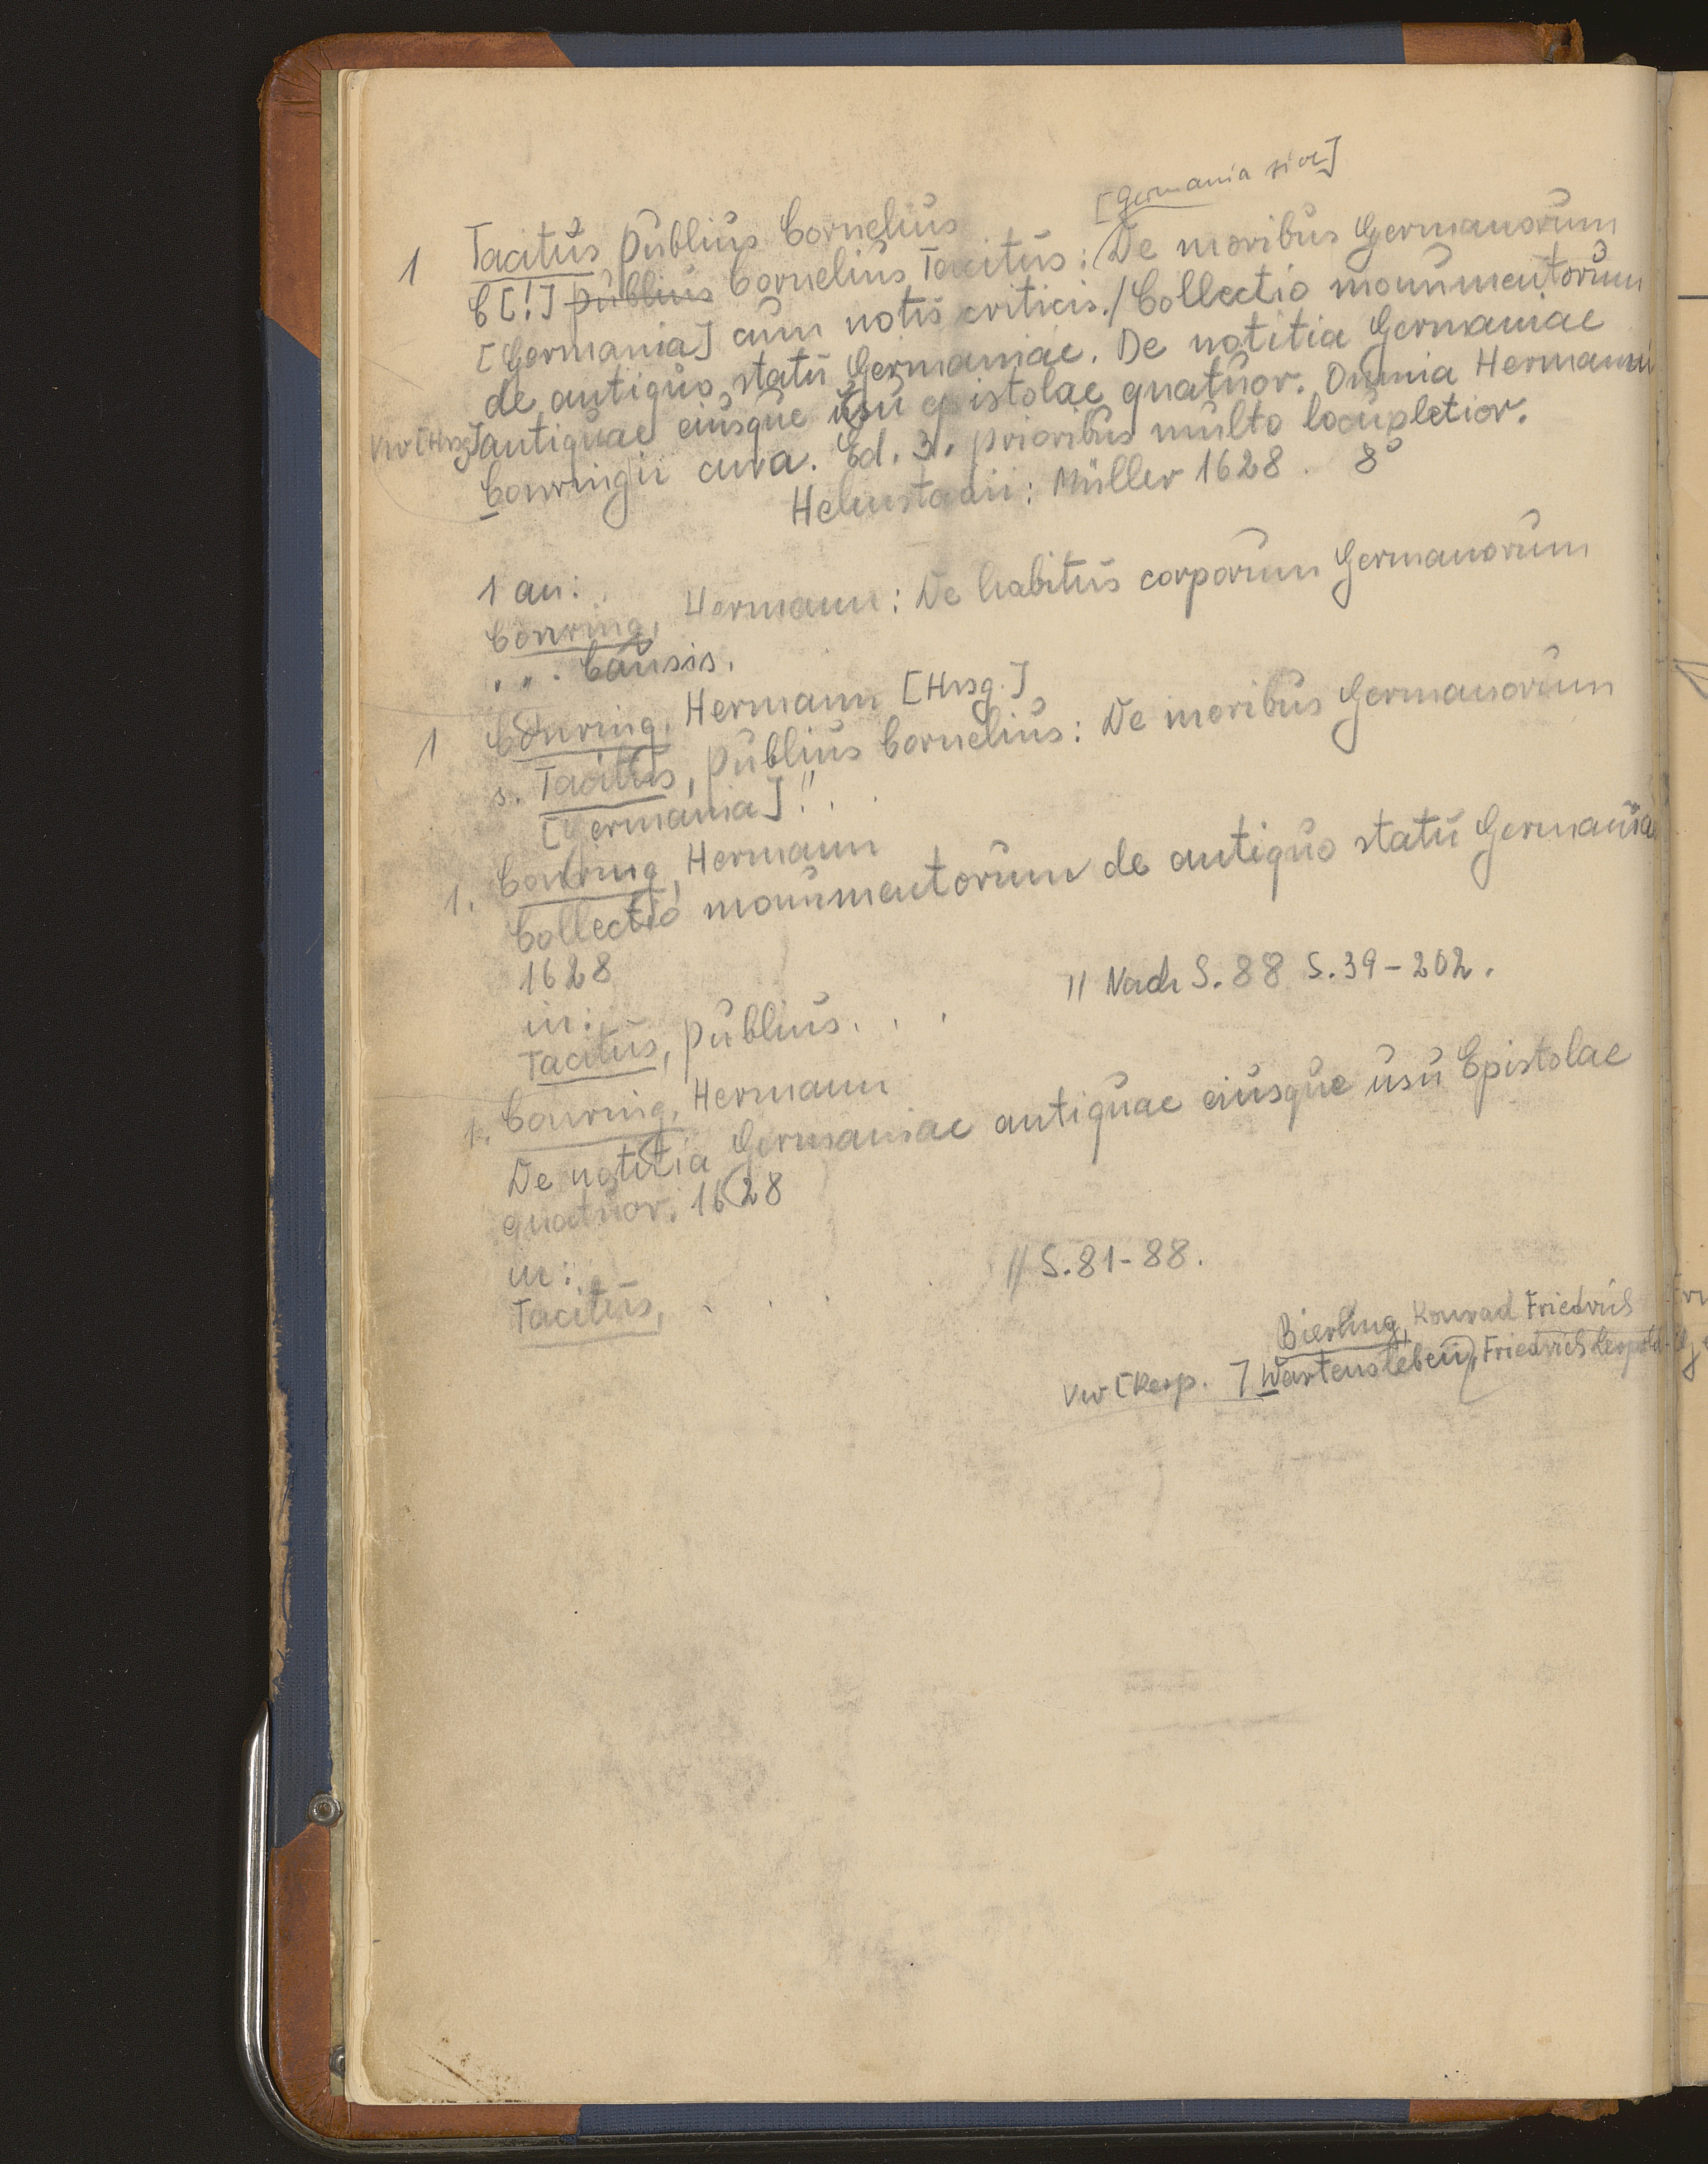 [Germania sive]
1 Tacitus Publius Cornelius
C[!] Publius Cornelius Tacitus: De moribus Germanorum
[Germania] cum notis criticis./Collectio monumentorum
de antiquo statu Germaniae. De notitia Germaniae
Vw[Hrsg] antiquae eiusque usu epistolae quatuor. Omnia Hermanni
Conringii cura. Ed. 3. prioribus multo locupletior.
Helmstadii: Müller 1628. 8°
1 an:
Conring, Hermann: De habitus corporum Germanorum
... Causis.
1 Conring, Hermann [Hrsg.]
s. Tacitus, Publius Cornelius: De moribus Germanorum
[Germania]!..
1. Conring, Hermann
Collectio monumentorum de antiquo statu Germania
1628
in:
// Nach S. 88 S. 39-202.
Tacitus, Publius. . .
1. Conring, Hermann
De notitia Germaniae antiquae eiusque usu Epistolae
quatuor. 1628
in:
// S. 81-88.
Tacitus, . . .
Bierling, Konrad Friedrich
Vw [Resp. ] Wartensleben, Friedrich Leopold